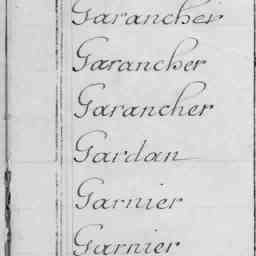 Garancher
Garancher
Garancher
Gardan
Garnier
Garnier